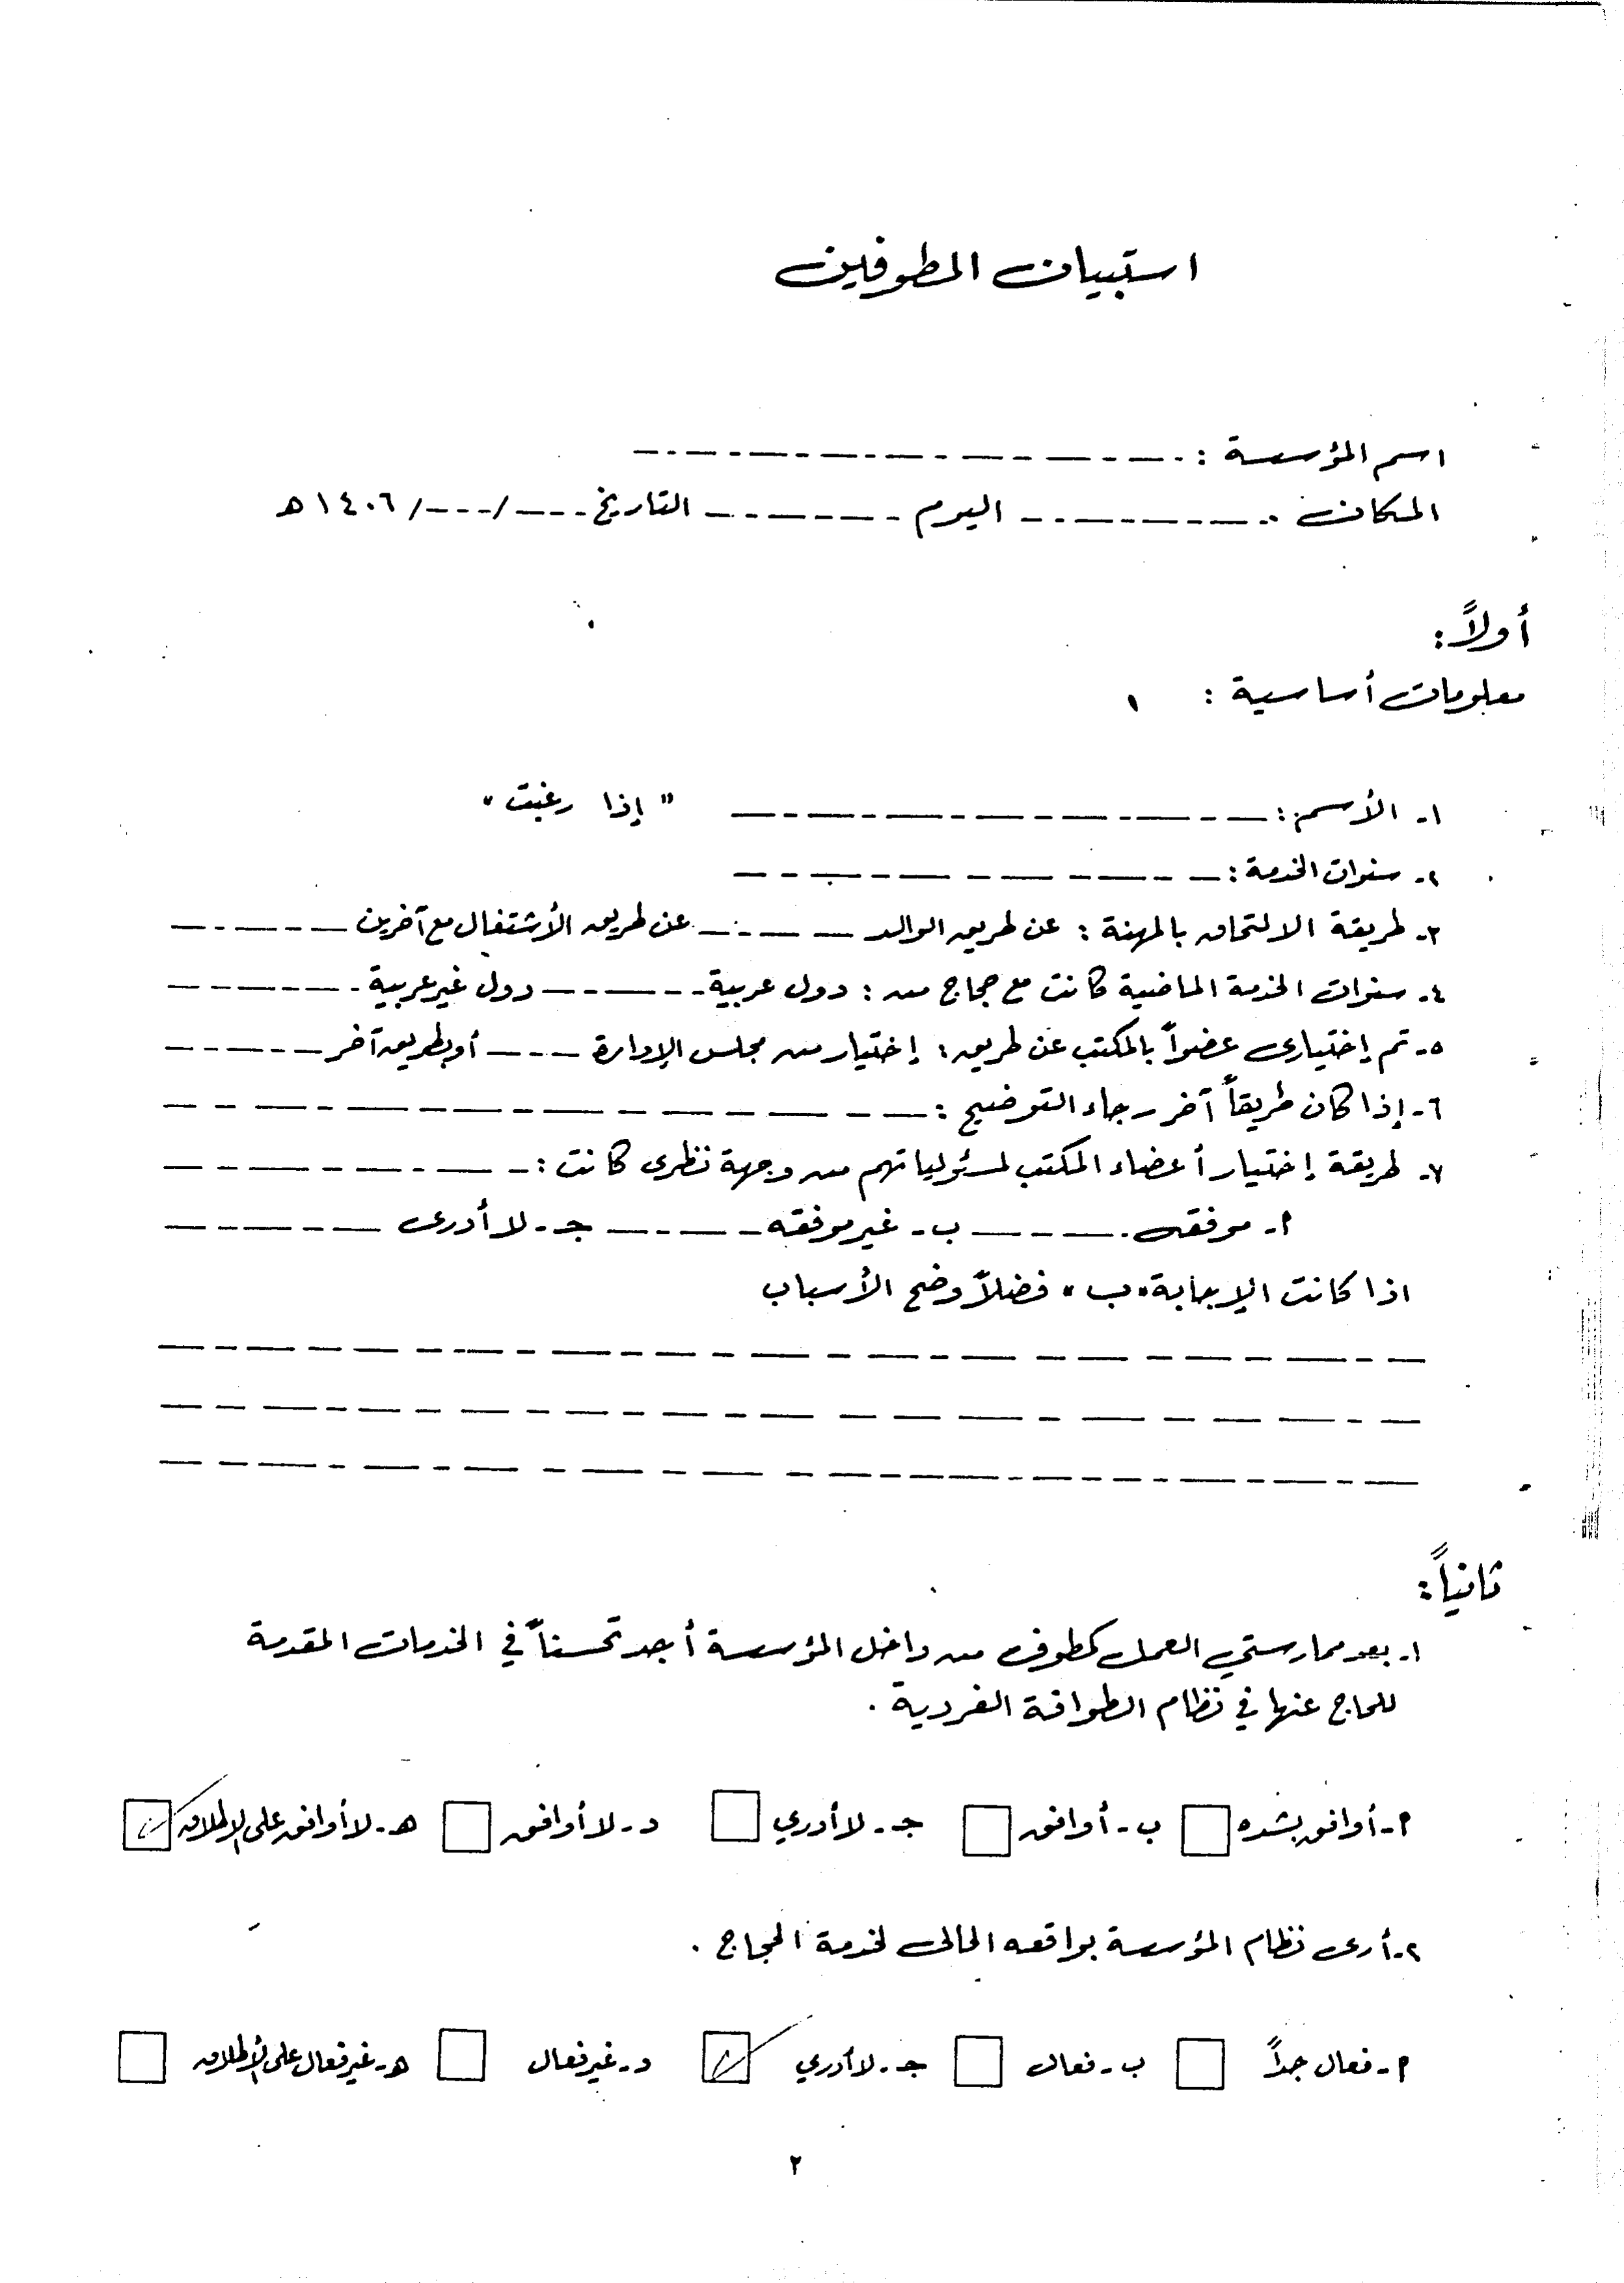 استبيان المطوفين
اسم المؤسسة : ------------------
المكان ---------- اليوم -------- التاريخ ---/---/ ١٤٠٦ هـ
أولاً :
معلومات أساسية :
١- الأسم : ------------------ " إذا رغبت "
٢- سنوات الخدمة : ------------------
٣- طريقة الالتحاق بالمهنة : عن طريق الوالد ------ عن طريق الأشتغال مع آخرين ------
٤- سنوات الخدمة الماضية كانت مع حجاج من : دول عربية ------ دول غير عربية ------
٥- تم إختيارى عضواً بالمكتب عن طريق : إختيار من مجلس الإدارة ---- أو بطريق آخر ------
٦- إذا كان طريقاً آخر رجاء التوضيح : ------------------
٧- طريقة إختيار أعضاء المكتب لمسئولياتهم من وجهة نظرى كانت : ----------
أ- موفقه ------ ب- غير موفقه ------ جـ- لا أدرى ------
اذا كانت الإجابة " ب " فضلاً وضح الأسباب
------------------------------------
------------------------------------
------------------------------------
ثانياً :
١- بعد ممارستي العمل كمطوف من داخل المؤسسة أجد تحسناً في الخدمات المقدمة
للحاج عنها في نظام الطوافة الفردية .
أ- أوافق بشده □ ب- أوافق □ جـ- لا أدري □ د- لا أوافق □ هـ- لا أوافق على الإطلاق ☑
٢- أرى نظام المؤسسة بواقعه الحالى لخدمة الحجاج .
أ- فعال جداً □ ب- فعال □ جـ- لا أدري ☑ د- غير فعال □ هـ- غير فعال على الأطلاق □
٢